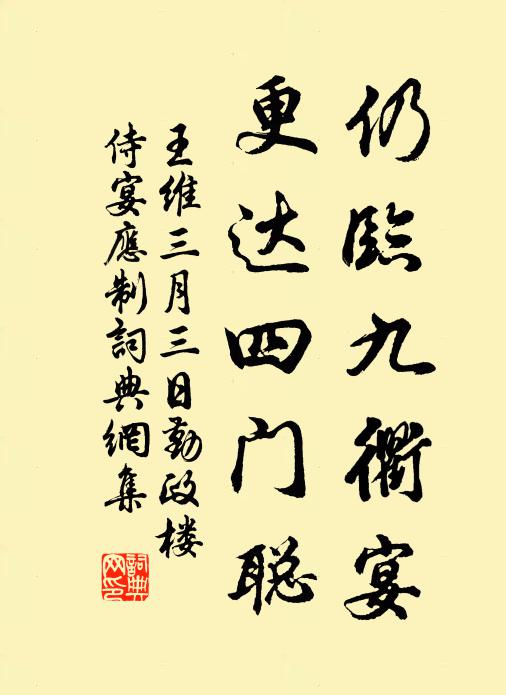 仍临九衢宴
更达四门聪
王维三月三日勤政楼
侍宴應制詞典網集
詞典网印